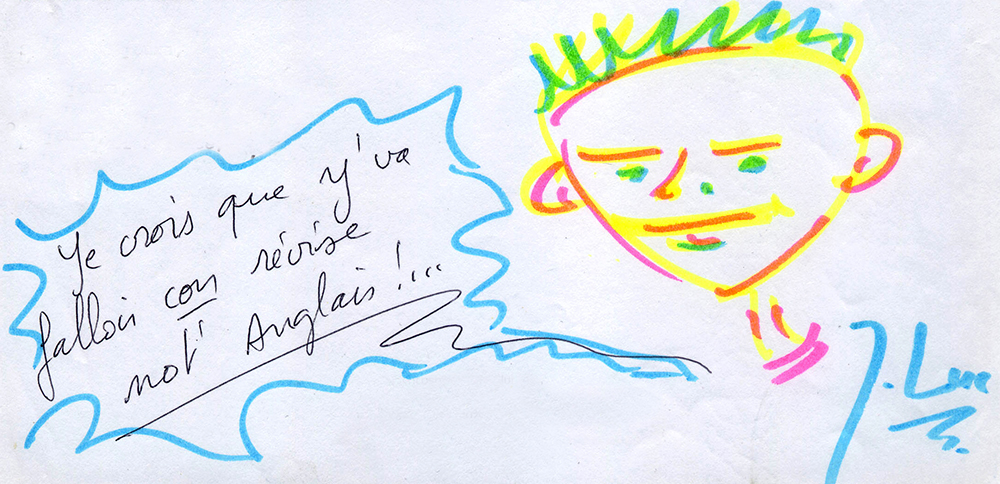 Je crois que y'va
falloir con révise
not' Anglais !...
J. Luc